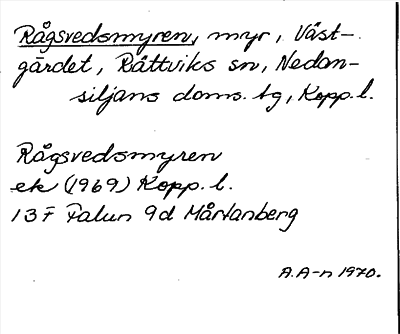 Rågsvedsmyren, myr, Väst-
gärdet, Rättviks sn, Nedan-
siljans doms. tg, Kopp. l.
Rågsvedsmyren
ek (1969) Kopp. l.
13 F Falun 9d Mårtanberg
A.A-n 1970.